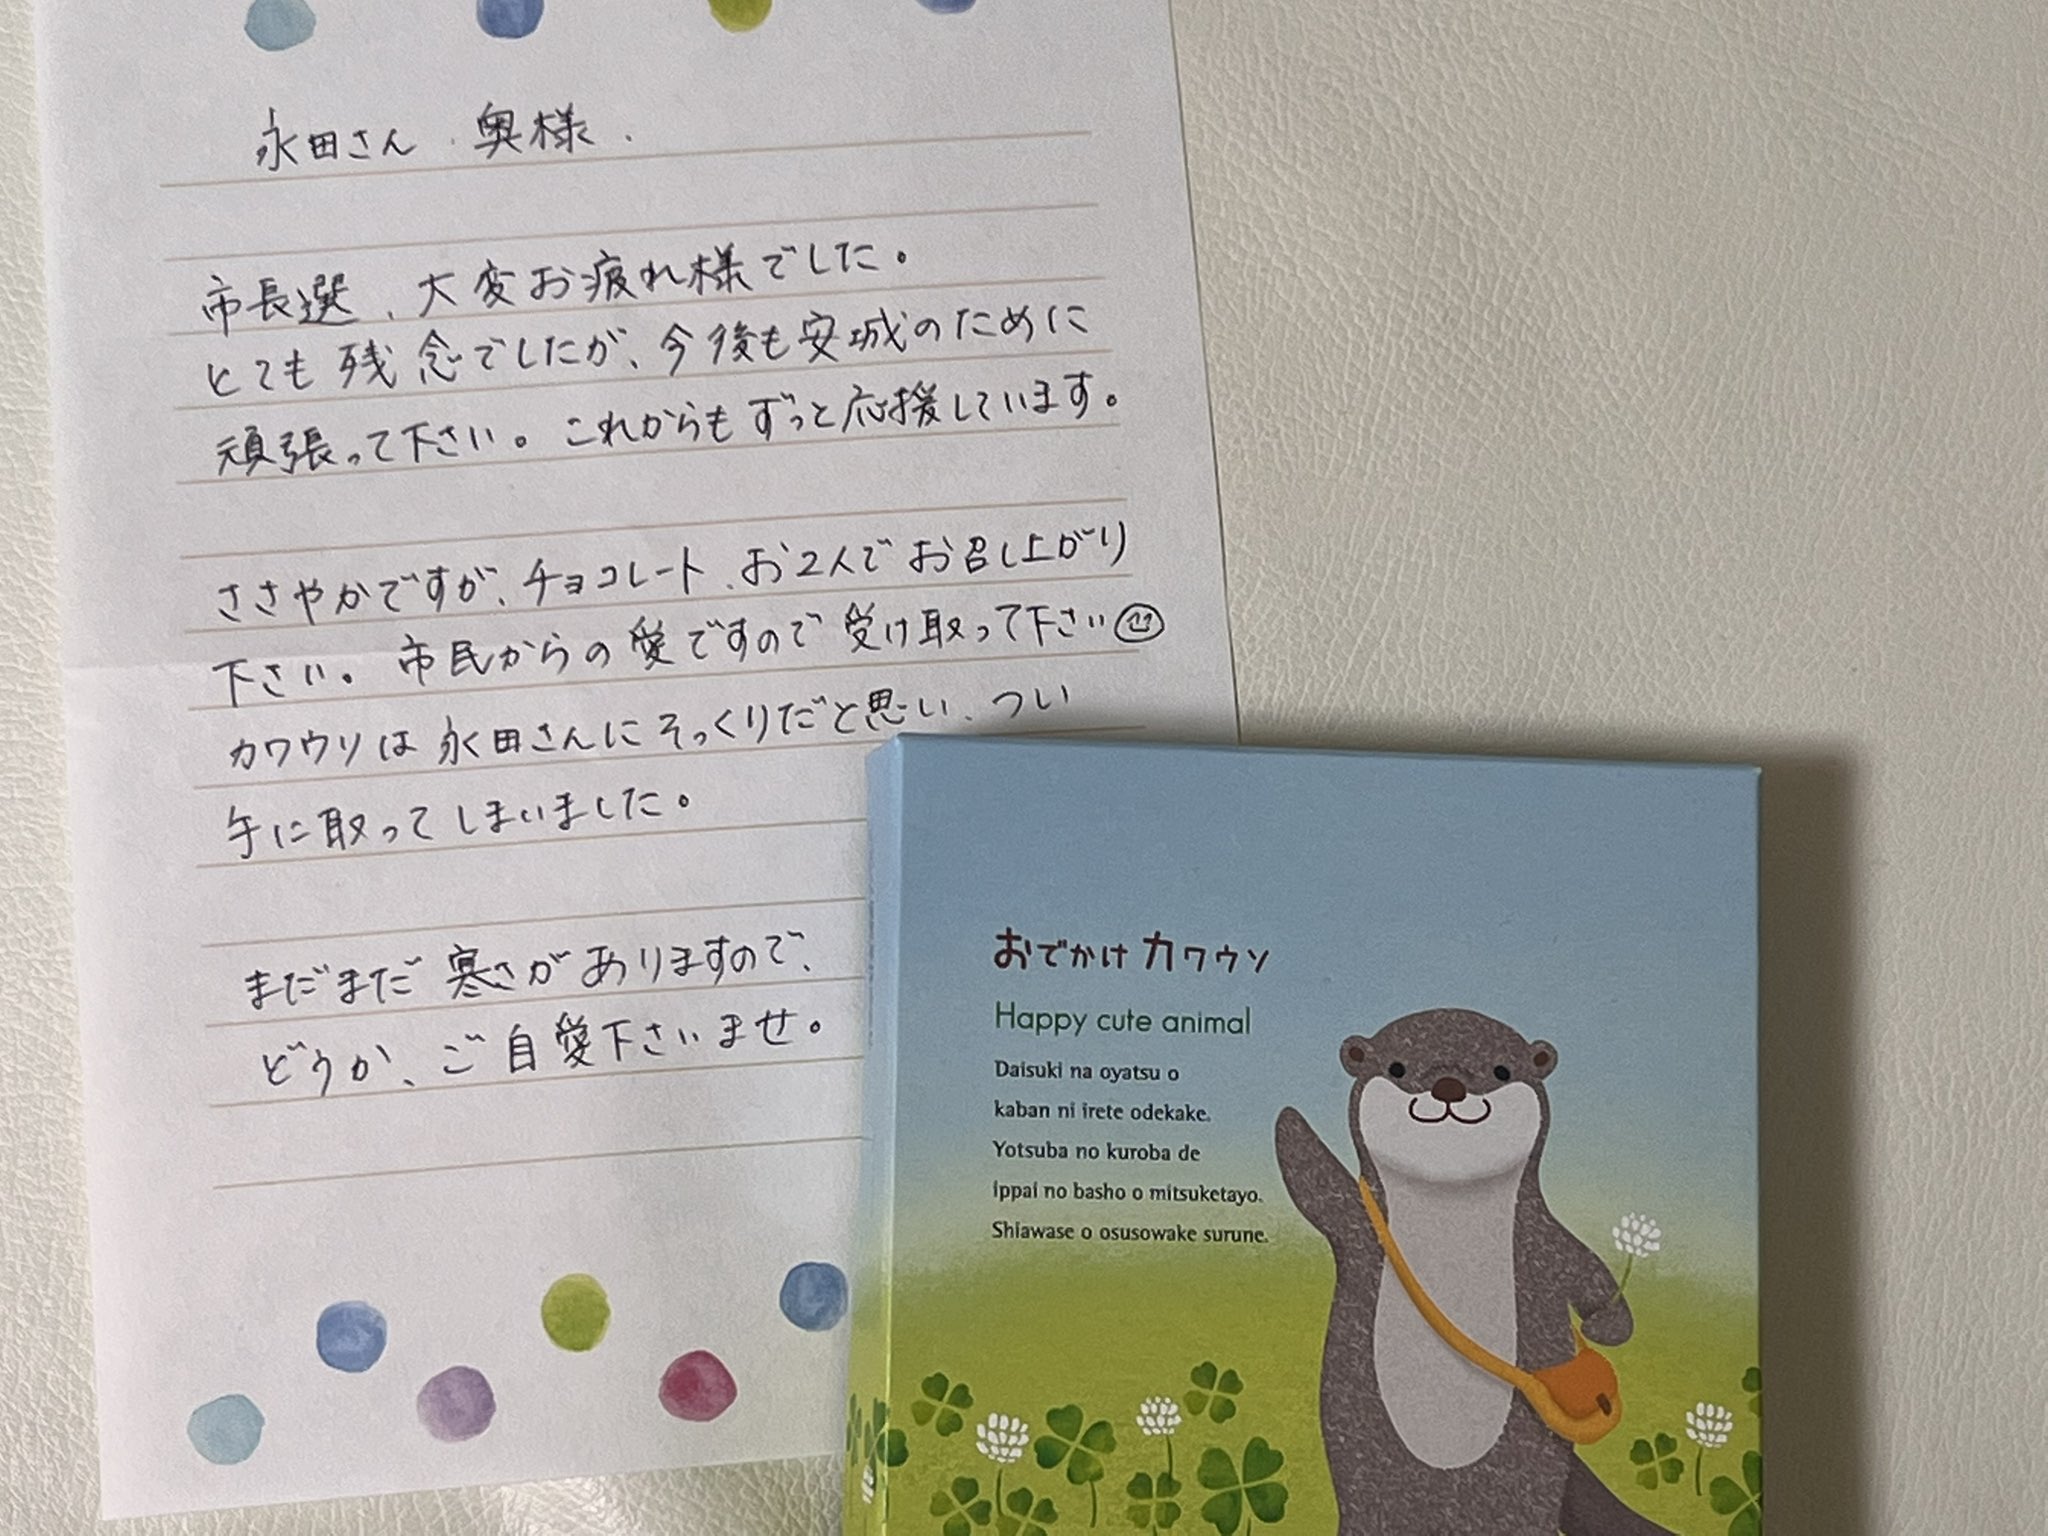 永田さん 奥様
市長選、大変お疲れ様でした。
とても残念でしたが、今後も安城のために
頑張って下さい。これからもずっと応援しています。
ささやかですが、チョコレート、お2人でお召し上がり
下さい。市民からの愛ですので受け取って下さい
カワウソは永田さんにそっくりだと思い、つい
手に取ってしまいました。
まだまだ寒さがありますので、
どうか、ご自愛下さいませ。
おでかけカワウソ
Happy cute animal
Daisuki na oyatsu o
kaban ni irete odekake.
Yotsuba no kuroba de
ippai no basho o mitsuketayo.
Shiawase o osusowake surune.